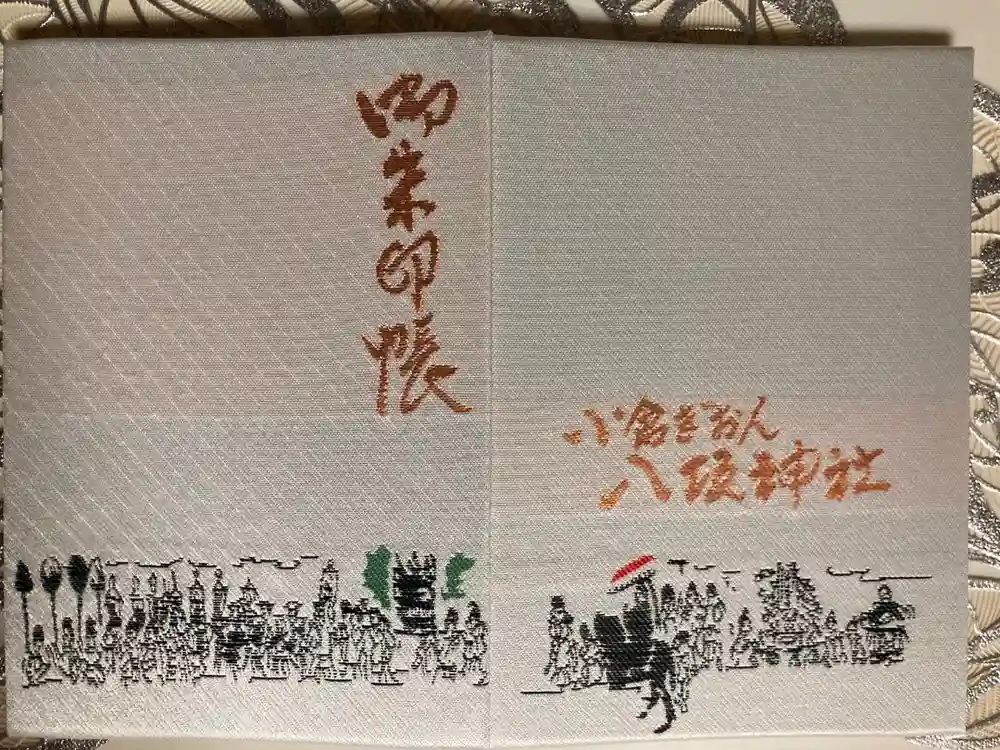 御朱印帳
小倉ぎおん
八坂神社